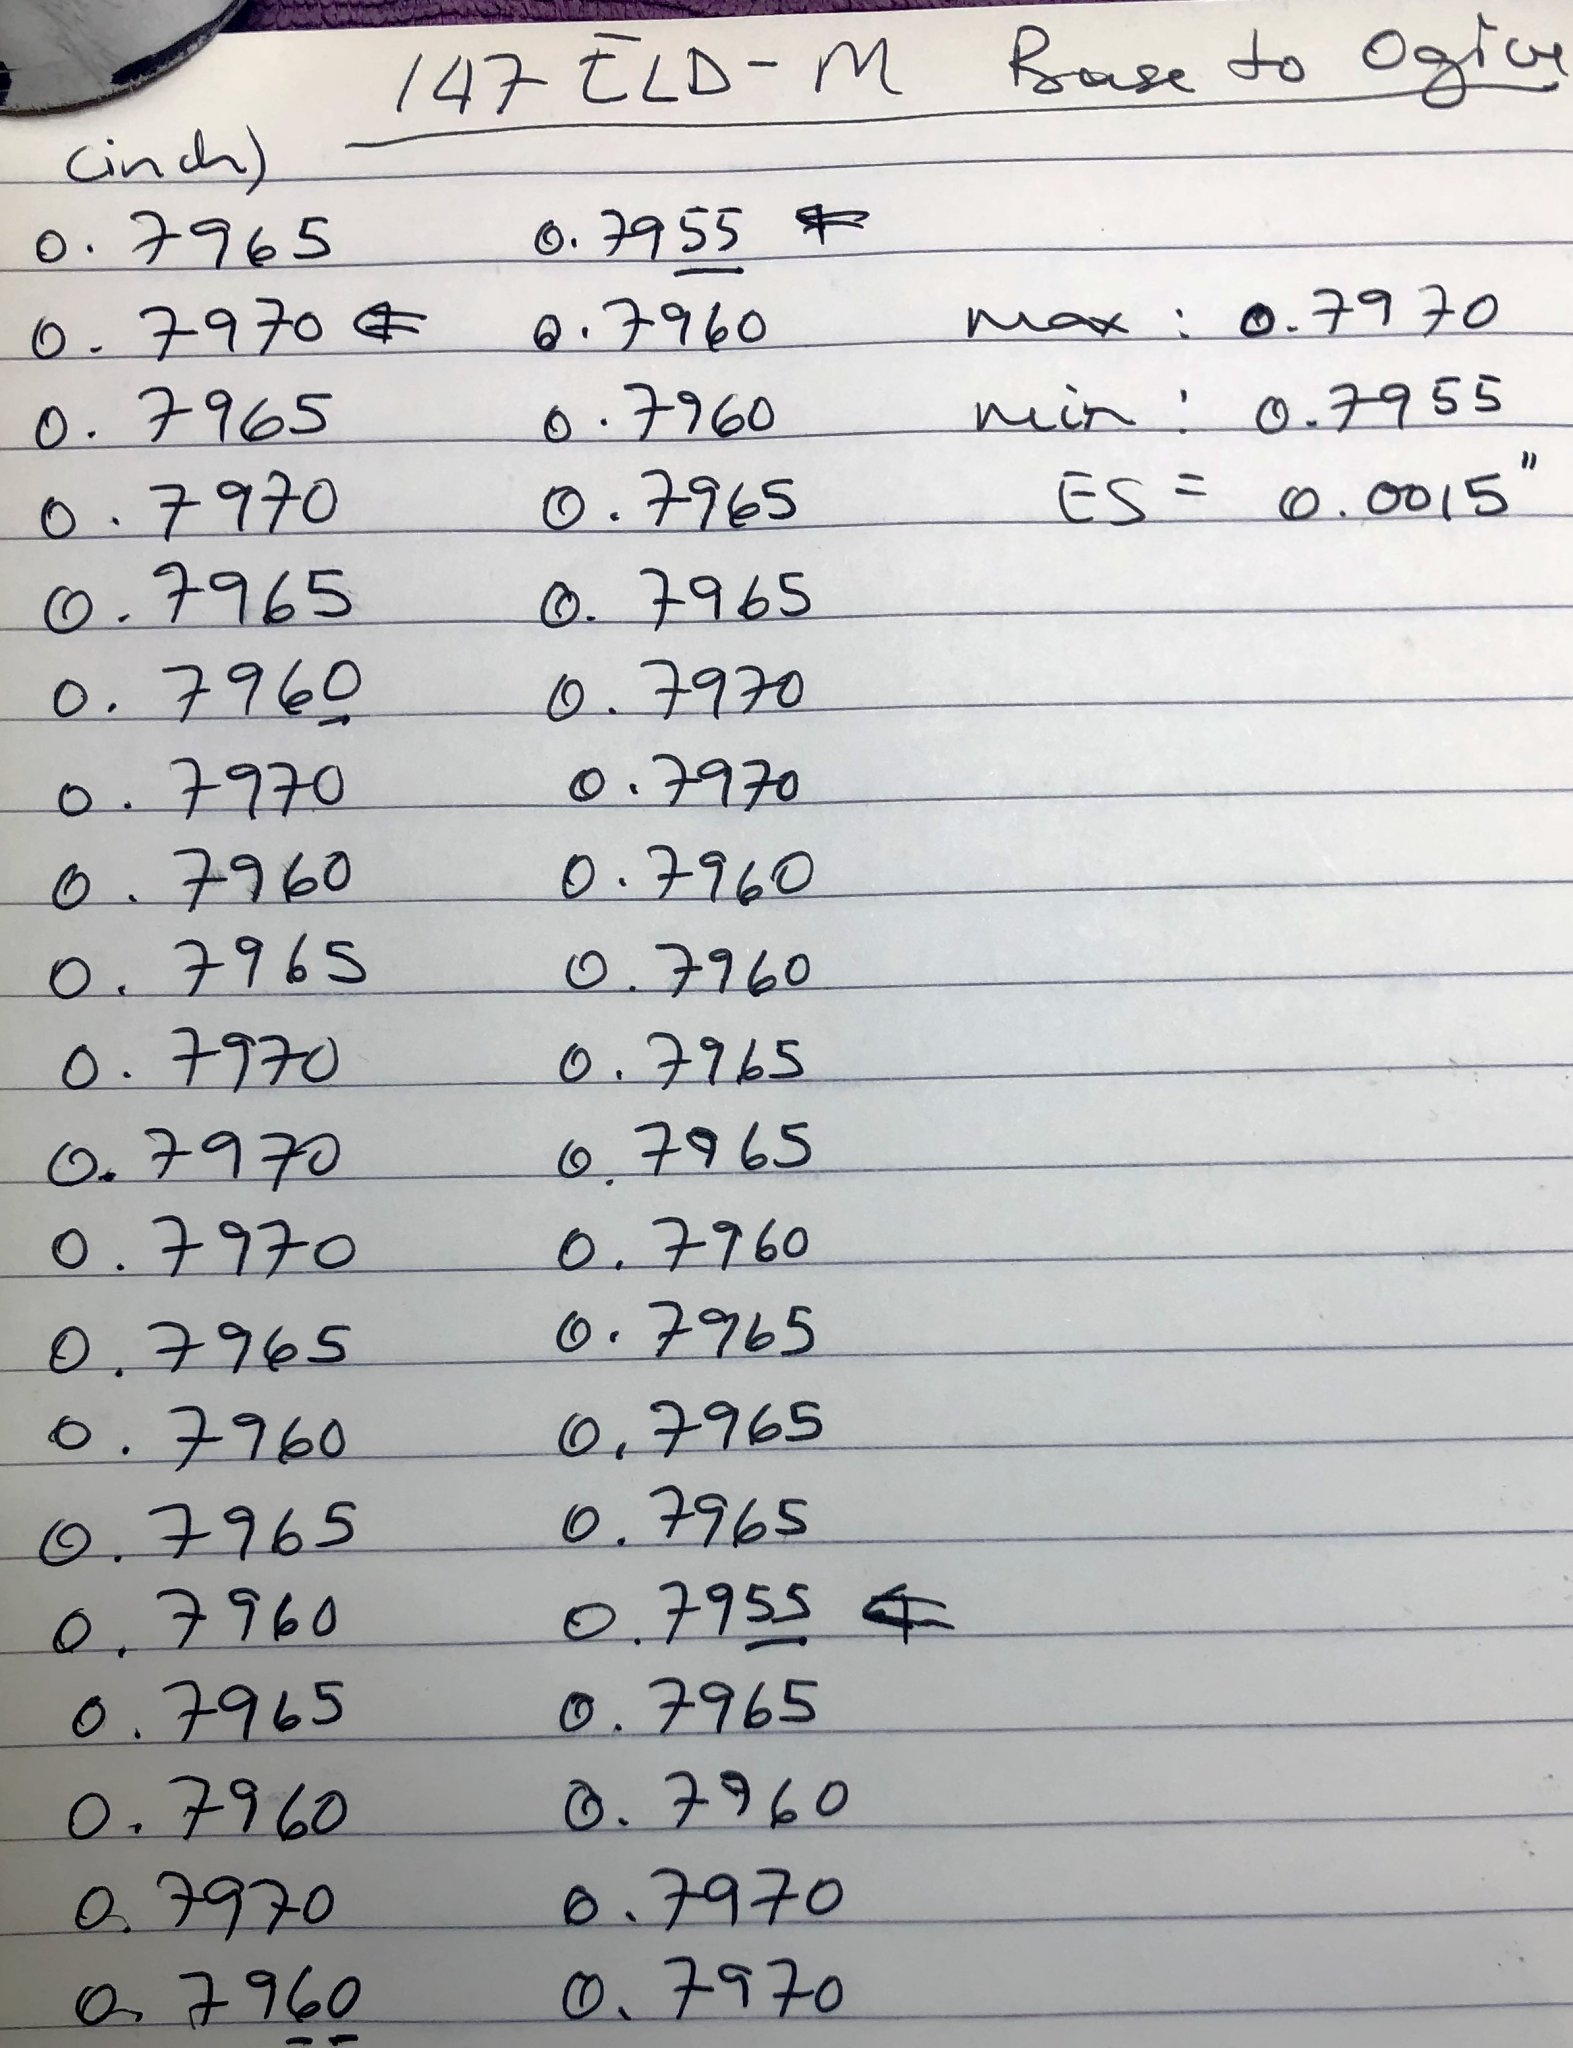 147 ELD-M Base to Ogive
(inch)
0.7965 0.7955 ⇐
0.7970 ⇐ 0.7960 max : 0.7970
0.7965 0.7960 min : 0.7955
0.7970 0.7965 ES = 0.0015"
0.7965 0.7965
0.7960 0.7970
0.7970 0.7970
0.7960 0.7960
0.7965 0.7960
0.7970 0.7965
0.7970 0.7965
0.7970 0.7960
0.7965 0.7965
0.7960 0.7965
0.7965 0.7965
0.7960 0.7955 ⇐
0.7965 0.7965
0.7960 0.7960
0.7970 0.7970
0.7960 0.7970